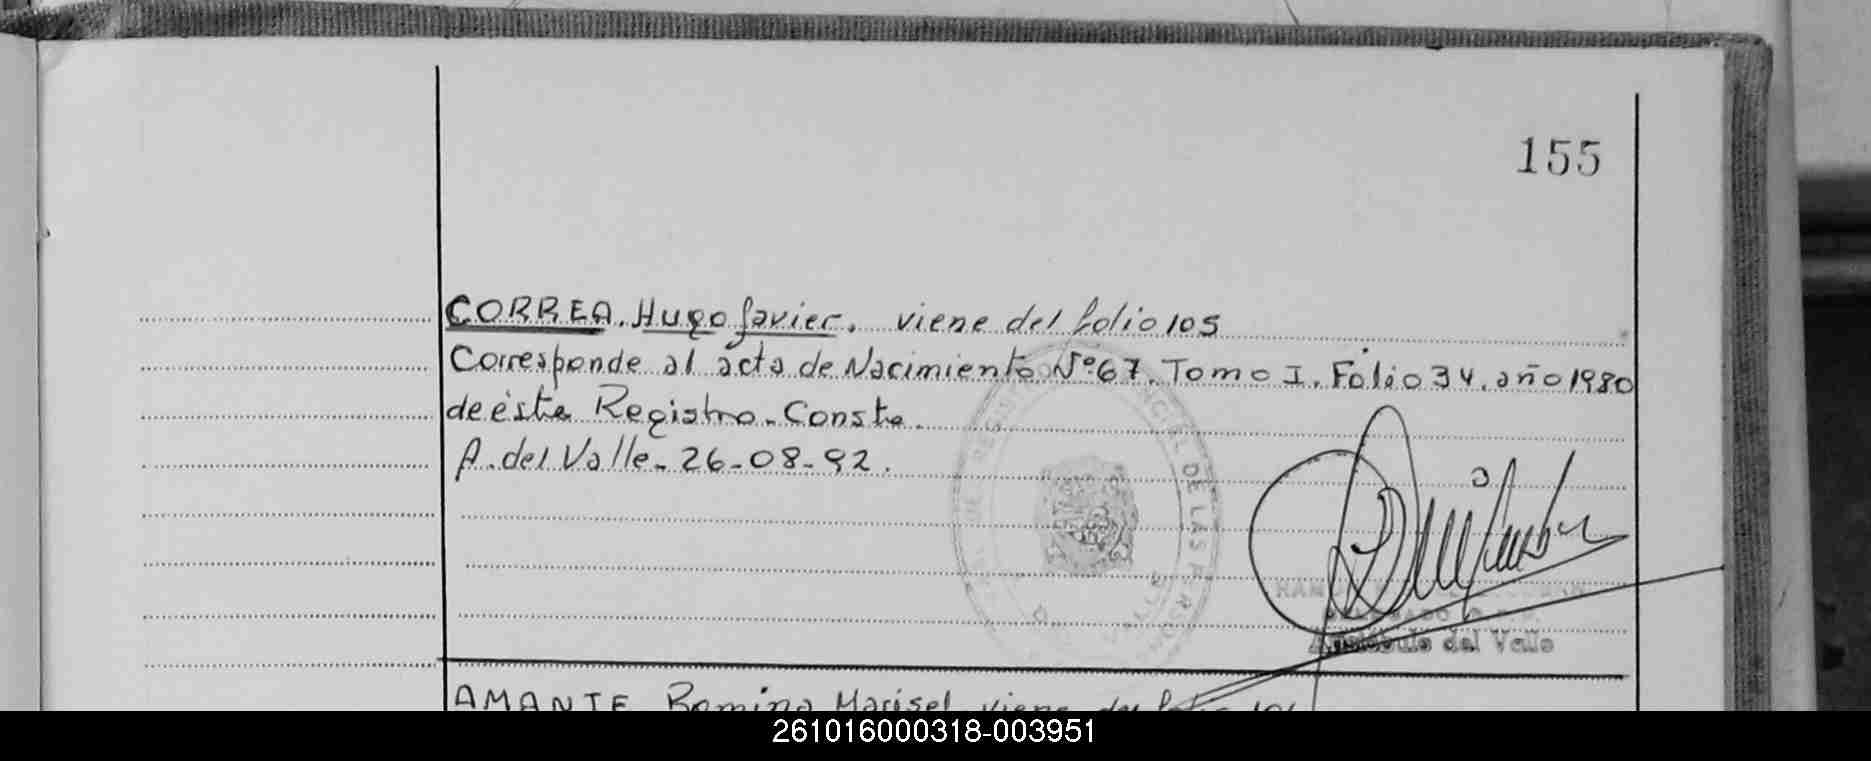 155
CORREA. Hugo Javier. viene del folio 105
Corresponde al acta de Nacimiento Nº 67. Tomo I. Folio 34. año 1980
de éste Registro. Conste.
A. del Valle. 26-08-92.
DE LAS PERSONAS
Aristóbulo del Valle
AMANTE Romina Marisel viene del folio 101
261016000318-003951